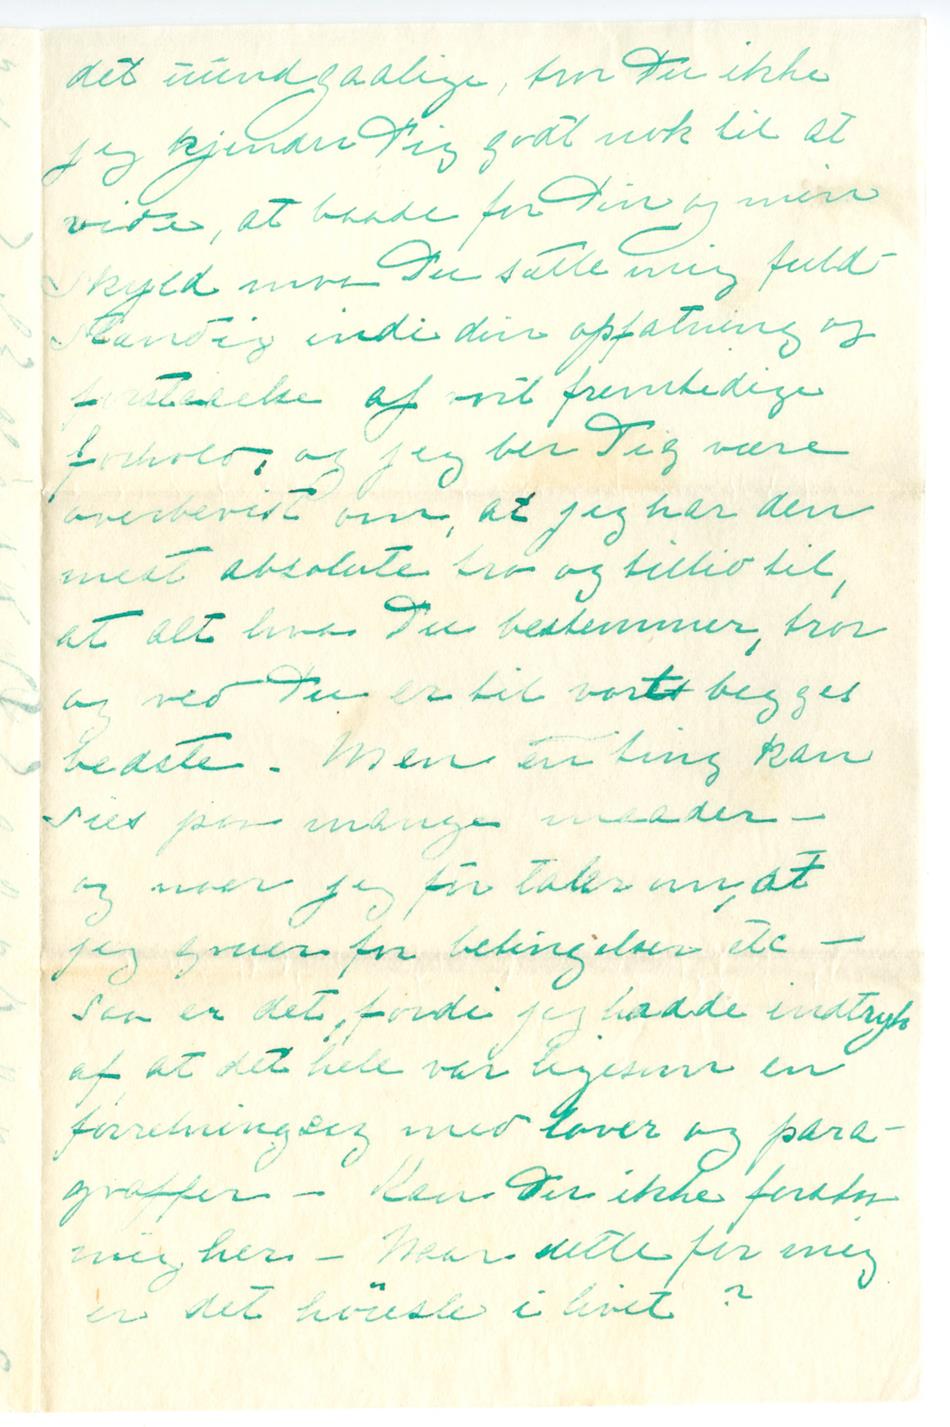 det uundgaalige, tror Du ikke
jeg kjender Dig godt nok til at
vide, at baade for Din og min
skyld maa Du sætte mig fuld-
stændig indi din opfatning og
forstaaelse af vort fremtidige
forhold, og jeg ber Dig være
overbevist om, at jeg har den
mest absolute tro og tillid til,
at alt hva Du bestemmer, tror
og ved Du er til vort begges
bedste - Men en ting kan
sies paa mange maader -
og naar jeg før taler om, at
jeg gruer for betingelser etc -
saa er det, fordi jeg hadde indtryk
af, at det hele var ligesom en
forretningssag med lover og para-
graffer - Kan Du ikke forstaa
mig her - Naar dette for mig
er det höieste i livet ?